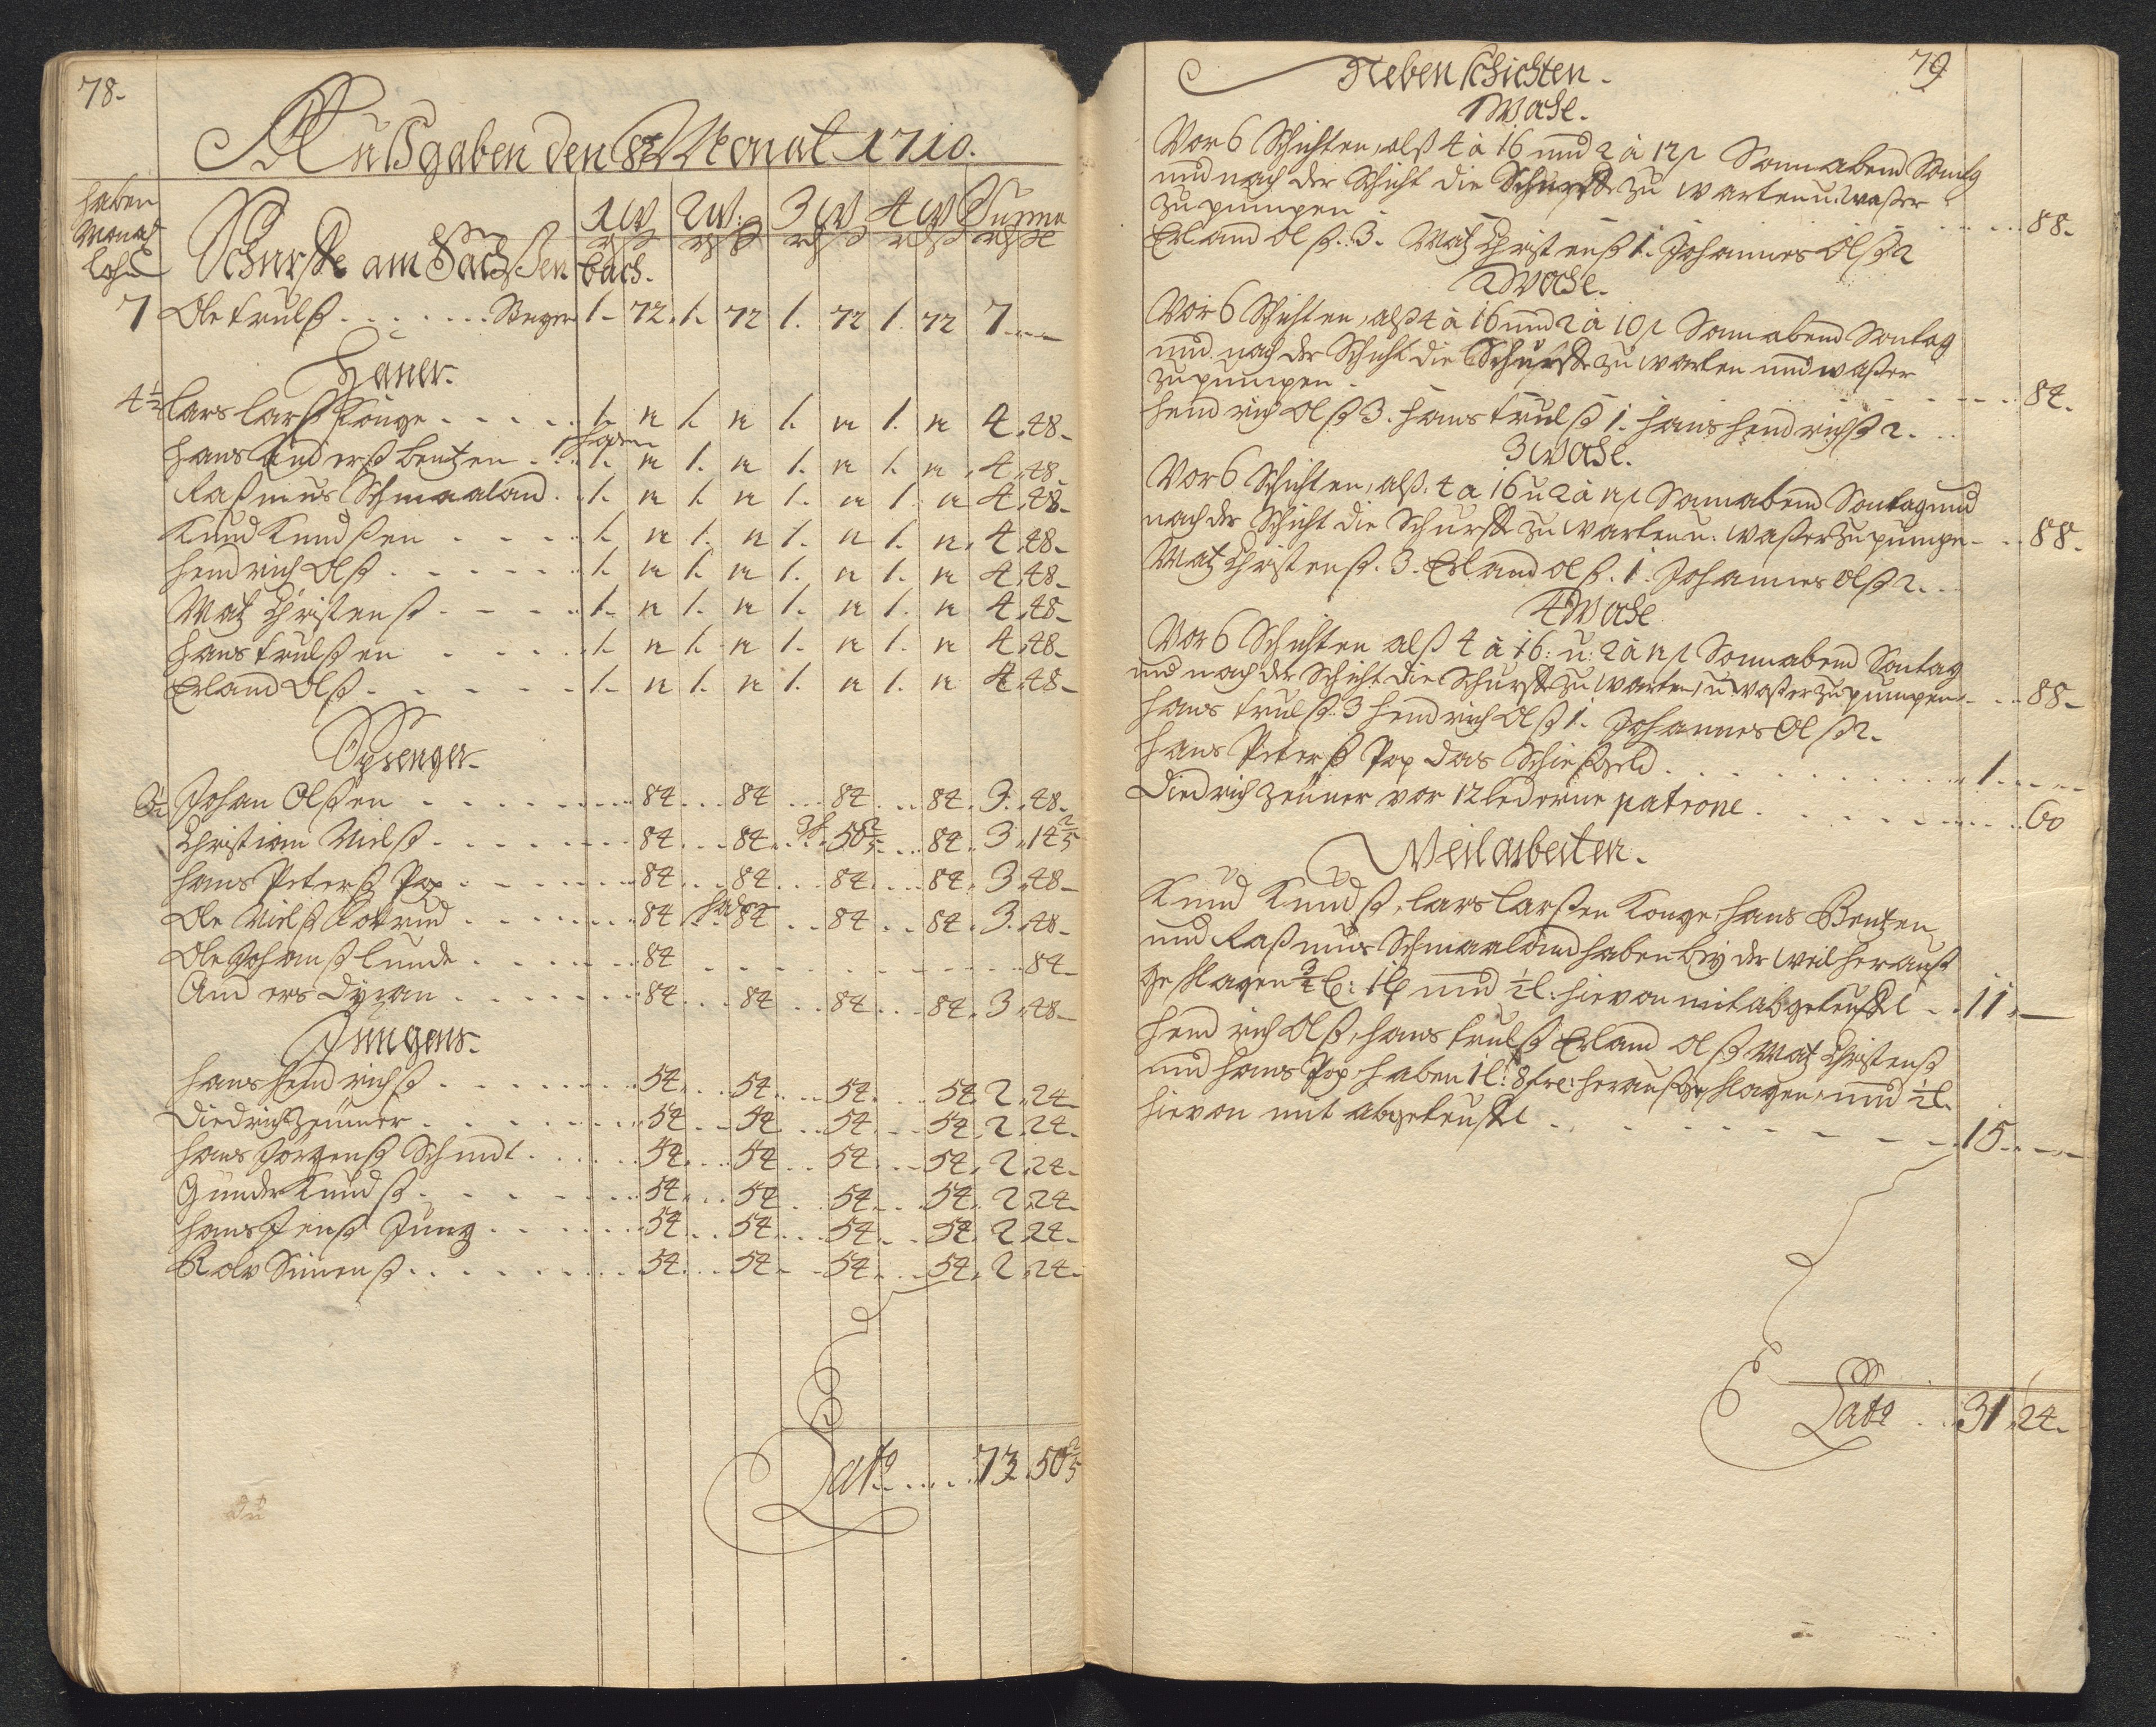 78.
Außgaben den 8t Monat 1710.
haben
Monat
lohn
1 W 2 W: 3 W 4 W Summa
rß rß rß rß rß
Schurffe am Sachßen bach.
7 Ole trulß Steyer 1. 72. 1. 72 1. 72 1. 72 7
Häuer.
4½ lars larß Konge 1. 12 1. 12 1. 12 1. 12 4. 48.
hans Anderß bentzen 1. 12 1. 12 1. 12 1. 12 4. 48.
Raßmus Schmaaland 1. 12 1. 12 1. 12 1. 12 4. 48.
Knud Knudßen 1. 12 1. 12 1. 12 1. 12. 4. 48.
hendrich Olß 1. 12 1. 12 1. 12 1. 12 4. 48.
Matz Christenß 1. 12 1. 12 1. 12 1. 12 4. 48.
hans trulßen 1. 12 1. 12 1. 12 1. 12 4. 48.
Erland Olß 1. 12 1. 12 1. 12 1. 12 4. 48.
Spsenger.
3½ Johan Olßen 84 84 84 84. 3. 48.
Christian Nielß 84 84 50 2/5 84. 3. 14 2/5
hans Peterß Pop 84 84 84 84. 3. 48.
Ole Nielß 84 84 84 84. 3. 48.
Ole Johanß lunde 84 84.
Anders Dyzan 84 84 84 84. 3. 48.
Jungens.
hans hendrichß 54 54 54 54. 2. 24.
Diedrich Zeuner 54 54 54 54. 2. 24.
hans Jorgenß Schmidt 54 54 54 54. 2. 24.
Gunder Knudß 54 54 54 54. 2. 24.
hans Jenß Jung 54 54 54 54. 2. 24.
Rolv Simenß 54 54 54 54. 2. 24.
Lato 73. 50 2/5
79
Neben schichten.
1 Woche.
Vor 6 Schichten, alß 4 à 16 und 2 à 12 ß Sonnabend Sontg
und nach der Schicht die Schurffe zu warten u. waßer
zu pumpen 88.
Erland Olß. 3. Matz Christenß 1. Johannes Olß 2
2 Woche.
Vor 6 Schichten, alß 4 à 16 und 2 à 10 ß Sonnabend Sontag
und nach der Schicht die Schurffe zu warten und waßer
zu pumpen 84.
hendrich Olß 3. hans trulß 1. hans hendrichß 2.
3 Woche.
Vor 6 Schichten, alß. 4 à 16 u 2 à 12 ß Sonnabend Sontag und
nach der Schicht die Schurffe zu warten u. waßer zu pumpen 88.
Matz Christenß. 3. Erland Olß. 1. Johannes Olß 2.
4 Woche
Vor 6 Schichten alß 4 à 16: u: 2 à 12 ß Sonnabend Sontag
und nach der Schicht die Schurffe zu warten, u waßer zu pumpen 88.
hans trulß. 3 hendrich Olß 1. Johannes Olß 2.
hans Peterß Pop das Schießgeld 1.
Diedrich Zeuner vor 12 lederne patrone 60
Weilarbeiten.
Knud Knudß, lars larßen Konge, hans Bentzen
und Raßmus Schmaaland haben bey der weil herauß
geschlagen ¾ l: und ½ l: hievon mit abgeteufft 11.
hendrich Olß, hans trulß Erland Olß Matz Christenß
und hans Pop haben 1 l: 8 herauß geschlagen, und ½ l.
hievon mit abgeteufft 15.
Lato 31. 24.